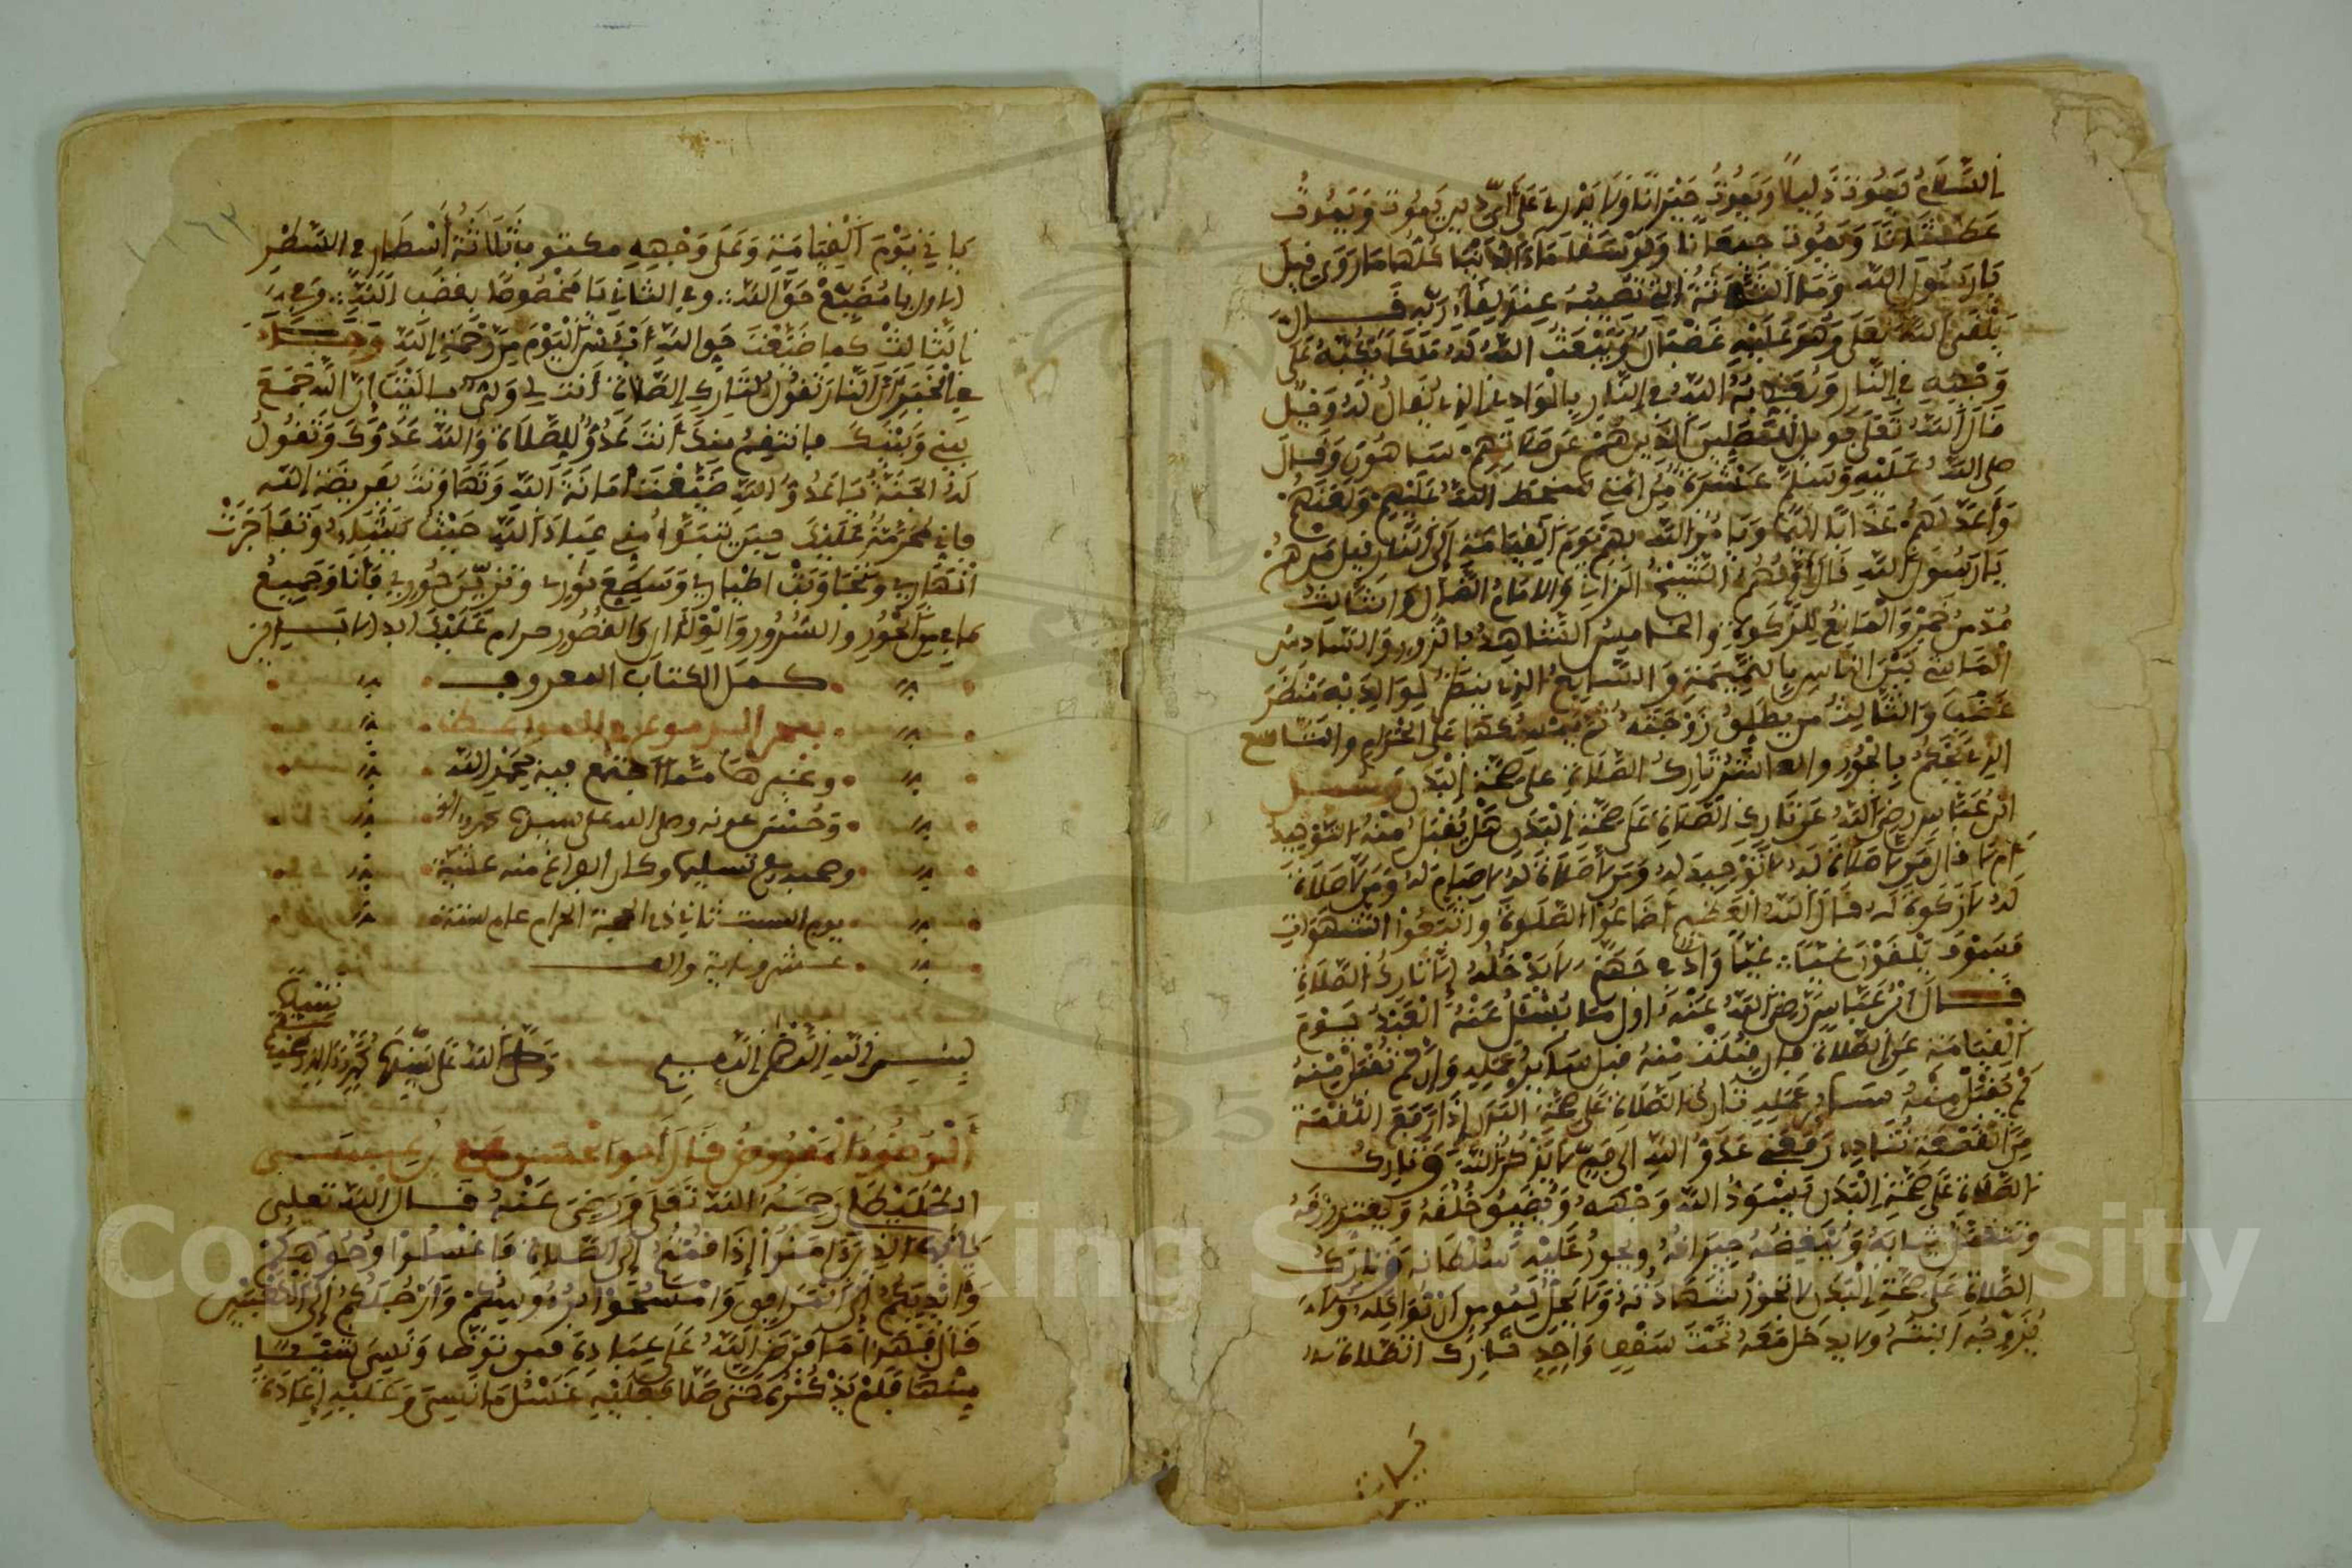 السَّلَامُ يَمُوتُ ذَلِيلًا وَيَمُوتُ حَيْرَانًا وَلَا يَدْرِي عَلَى أَيِّ دِينٍ يَمُوتُ وَيَمُوتُ
عَطْشَانًا وَيَمُوتُ جِيعَانًا وَلَوْ سُقِيَ مَاءَ الدُّنْيَا كُلَّهَا مَا رَوِيَ قِيلَ
يَا رَسُولَ اللَّهِ وَمَا الَّتِي تُصِيبُهُ عِنْدَ لِقَاءِ رَبِّهِ قَالَ
يَلْقَى اللَّهَ تَعَلَى وَهُوَ عَلَيْهِ غَضْبَانُ وَيَبْعَثُ اللَّهُ لَهُ مَلَكًا يَكُبُّهُ عَلَى
وَجْهِهِ فِي النَّارِ وَيُعَذِّبُهُ اللَّهُ فِي النَّارِ بِالْوَادِي الذِي يُقَالُ لَهُ وَيْلٌ
قَالَ اللَّهُ تَعَلَى فَوَيْلٌ لِلْمُصَلِّينَ الَّذِينَ هُمْ عَنْ صَلَاتِهِمْ سَاهُونَ وَقَالَ
صلى اللَّهُ عَلَيْهِ وَسَلَّمَ عَشْرَةٌ مِنْ أُمَّتِي سَخِطَ اللَّهُ عَلَيْهِمْ وَلَعَنَهُمْ
وَأَعَدَّ لَهُمْ عَذَابًا أَلِيمًا وَيَامُرُ اللَّهُ بِهِمْ يَوْمَ الْقِيَامَةِ إِلَى النَّارِ قِيلَ مَنْ هُمْ
يَا رَسُولَ اللَّهِ قَالَ أَوَّلُهُمُ الشَّيْخُ الزَّانِي وَالْإِمَامُ الضَّالُّ وَالثَّالِثُ
مُدْمِنُ خَمْرٍ وَالْمَانِعُ لِلزَّكَوةِ وَالْخَامِسُ الشَّاهِدُ بِالزُّورِ وَالسَّادِسُ
الْمَاشِي بَيْنَ النَّاسِ بِالنَّمِيمَةِ وَالسَّابِعُ الذِي يَنْظُرُ لِوَالِدَيْهِ بِنَظَرِ
غَضَبٍ وَالثَّالِثُ مَنْ يُطَلِّقُ زَوْجَتَهُ ثُمَّ يُمْسِكُهَا عَلَى الْحَرَامِ وَالتَّاسِعُ
الذِي يَحْكُمُ بِالْجُورِ وَالْعَاشِرُ تَارِكُ الصَّلَاةِ عَلَى صِحَّةِ الْبَدَنِ وَسُئِلَ
ابْنُ عَبَّاسٍ رَضِيَ اللَّهُ عَنْ تَارِكِ الصَّلَاةِ عَلَى صِحَّةِ الْبَدَنِ هَلْ يُقْبَلُ مِنْهُ التَّوْحِيدُ
أَمْ لَا قَالَ مَنْ لَا صَلَاةَ لَهُ لَا تَوْحِيدَ لَهُ وَمَنْ لَا صَلَاةَ لَهُ لَا صِيَامَ لَهُ وَمَنْ لَا صَلَاةَ
لَهُ لَا زَكَوةَ لَهُ قَالَ اللَّهُ الْعَظِيمُ أَضَاعُوا الصَّلَوةَ وَاتَّبَعُوا الشَّهَوَاتِ
فَسَوْفَ يَلْقَوْنَ غَيًّا غَيًّا وَادٍ فِي جَهَنَّمَ لَا يَدْخُلُهُ إِلَّا تَارِكُ الصَّلَاةِ
قَالَ ابْنُ عَبَّاسٍ رَضِيَ اللَّهُ عَنْهُ أول مَا يُسْئَلُ عَنْهُ الْعَبْدُ يَوْمَ
الْقِيَامَةِ عَنِ الصَّلَاةِ فَإِنْ قُبِلَتْ مِنْهُ قُبِلَ سَائِرُ عَمَلِهِ وَإِنْ لَمْ تُقْبَلْ مِنْهُ
لَمْ يُقْبَلْ مِنْهُ سَائِرُ عَمَلِهِ تَارِكُ الصَّلَاةِ عَلَى صِحَّةِ الْبَدَنِ إِذَا رَفَعَ اللُّقْمَةَ
مِنَ الْقَصْعَةِ تُنَادِيهِ رَفَعْتَنِي عَدُوَّ اللَّهِ إِلَى فَمٍ لَا يَذْكُرُ اللَّهَ وَتَارِكُ
الصَّلَاةِ عَلَى صِحَّةِ الْبَدَنِ يُسَوِّدُ اللَّهُ وَجْهَهُ وَيُضَيِّقُ خُلُقَهُ وَيُعْسِرُ رِزْقَهُ
ثِيَابُهُ وَيُبْغِضُهُ جِيرَانُهُ وَيَجُورُ عَلَيْهِ سُلْطَانُهُ وَتَارِكُ
الصَّلَاةِ عَلَى صِحَّةِ الْبَدَنِ لَا تَجُوزُ شَهَادَتُهُ وَلَا يَحِلُّ لِمُومِنٍ أَنْ يُوَاكِلَهُ وَلَا
يُزَوِّجُهُ ابْنَتَهُ وَلَا يَدْخُلَ مَعَهُ تَحْتَ سَقْفٍ وَاحِدٍ تَارِكُ الصَّلَاةِ
يَاتِي يَوْمَ الْقِيَامَةِ وَعَلَى وَجْهِهِ مكتوب ثَلَاثَةُ أَسْطَارٍ فِي السَّطْرِ
الاول يَا مُضَيِّعَ حَقِّ اللَّهِ وَفِي الثَّانِي يَا مَخْصُوصًا بِغَضَبِ اللَّهِ وَفِي
الثَّالِثِ كَمَا ضَيَّعْتَ حَقَّ اللَّهِ الْيَوْمَ مِنْ رَحْمَةِ اللَّهِ وَجَاءَ
فِي الْخَبَرِ أَنَّ النَّارَ تَقُولُ لِتَارِكِ الصَّلَاةِ أَنْتَ لِي اللَّهَ جَمَعَ
بَيْنِي وَبَيْنَكَ فَأَنْتَقِمُ مِنْكَ أَنْتَ عَدُوٌّ لِلصَّلَاةِ وَاللَّهُ عَدُوُّكَ وَتَقُولُ
لَهُ الْجَنَّةُ يَا عَدُوَّ اللَّهِ ضَيَّعْتَ أَمَانَةَ اللَّهِ وَتَهَاوَنْتَ بِفَرِيضَةِ اللَّهِ
فَإِنِّي مُحَرَّمَةٌ عَلَيْكَ
أَنْهَارِي وَتَجَاوَبَتْ أَطْيَارِي وَسَطَعَ نُورِي وَتَزَيَّنَ حُورِي فَأَنَا وَجَمِيعُ
مَا فِيَّ مِنَ الْحُورِ وَالسُّرُورِ وَالْوِلْدَانِ وَالْقُصُورِ حرام عَلَيْكَ
كمل الكتاب المعروف
بعمر البرموني في المواعظ
وغيرها مما اجتمع فيه بحمد الله
وحسن عونه وصلى الله على سيدنا محمد واله
وصحبه وسلم تسليما وكان الفراغ منه عشية
يوم السبت ثاني ذي الحجة الحرام عام ستة
عشر ومائة والف
بِسْمِ اللَّهِ الرَّحْمَنِ الرَّحِيمِ وَصَلَّى اللَّهُ عَلَى سَيِّدِنَا مُحَمَّدٍ وَآلِهِ وَصَحْبِهِ
وسلم تسليما
الْوُضُوءُ الْمَفْرُوضُ قَالَ أَبُوا الْحَسَنِ بْنُ عِيسَى
الطُّلَيْطِلِي رَحِمَهُ اللَّهُ تَعَلَى وَرَضِيَ عَنْهُ قَالَ اللَّهُ تَعَلَى
يَا أَيُّهَا الَّذِينَ آمَنُوا إِذَا قُمْتُمْ إِلَى الصَّلَاةِ فَاغْسِلُوا وُجُوهَكُمْ
وَأَيْدِيَكُمْ إِلَى الْمَرَافِقِ وَامْسَحُوا بِرُءُوسِكُمْ وَأَرْجُلَكُمْ إِلَى الْكَعْبَيْنِ
قَالَ فَهَذَا مَا فَرَضَ اللَّهُ عَلَى عِبَادِهِ فَمَنْ تَوَضَّأَ وَنَسِيَ شَيْئًا
مِنْهَا فَلَمْ يَذْكُرْ حَتَّى صَلَّا فَعَلَيْهِ غَسْلُ مَا نَسِيَ وَعَلَيْهِ إِعَادَةُ
Copyright © King Saud University
1957